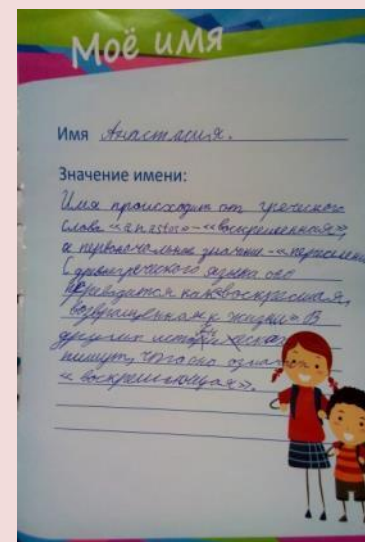 Моё имя
Имя Анастасия.
Значение имени:
Имя происходит от греческого
слова «anastas» - «воскрешенная»,
а первоначальное значение - «переселение
С древнегреческого языка оно
переводится как «воскресшая,
возвращенная к жизни». В
других исторических
пишут, что оно означ
«воскрешающая».